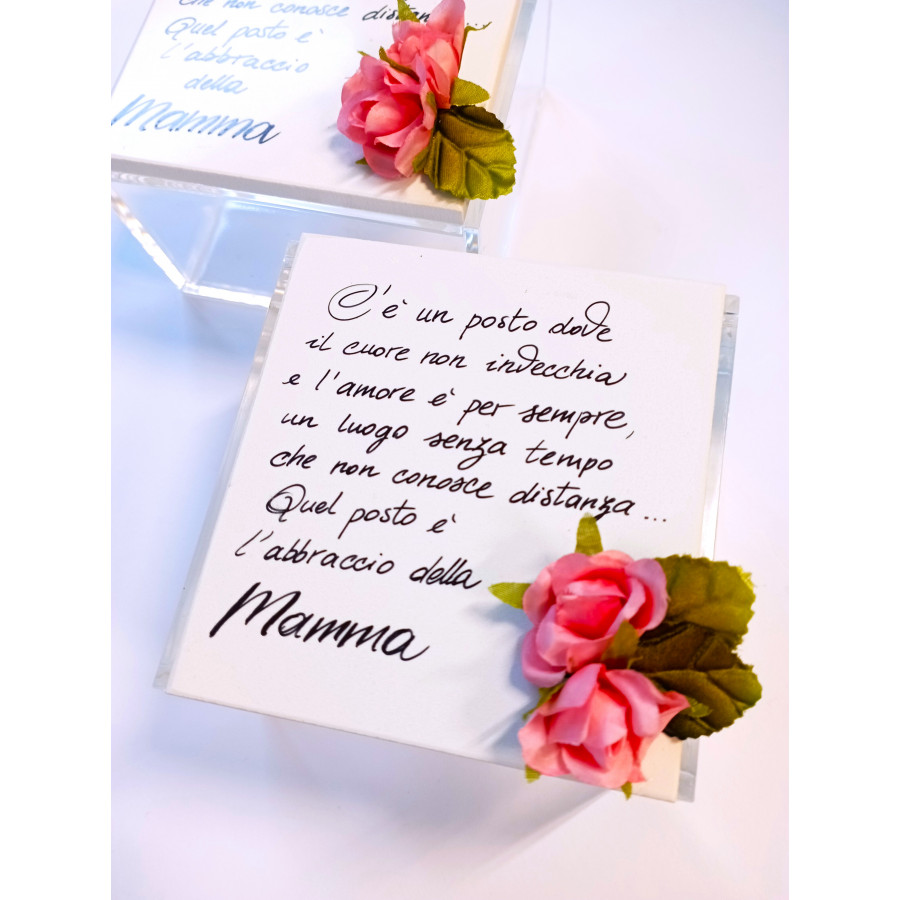 che non conosce distan...
Quel posto è
l'abbraccio
della
Mamma
C'è un posto dove
il cuore non invecchia
e l'amore è per sempre,
un luogo senza tempo
che non conosce distanza...
Quel posto è
l'abbraccio della
Mamma